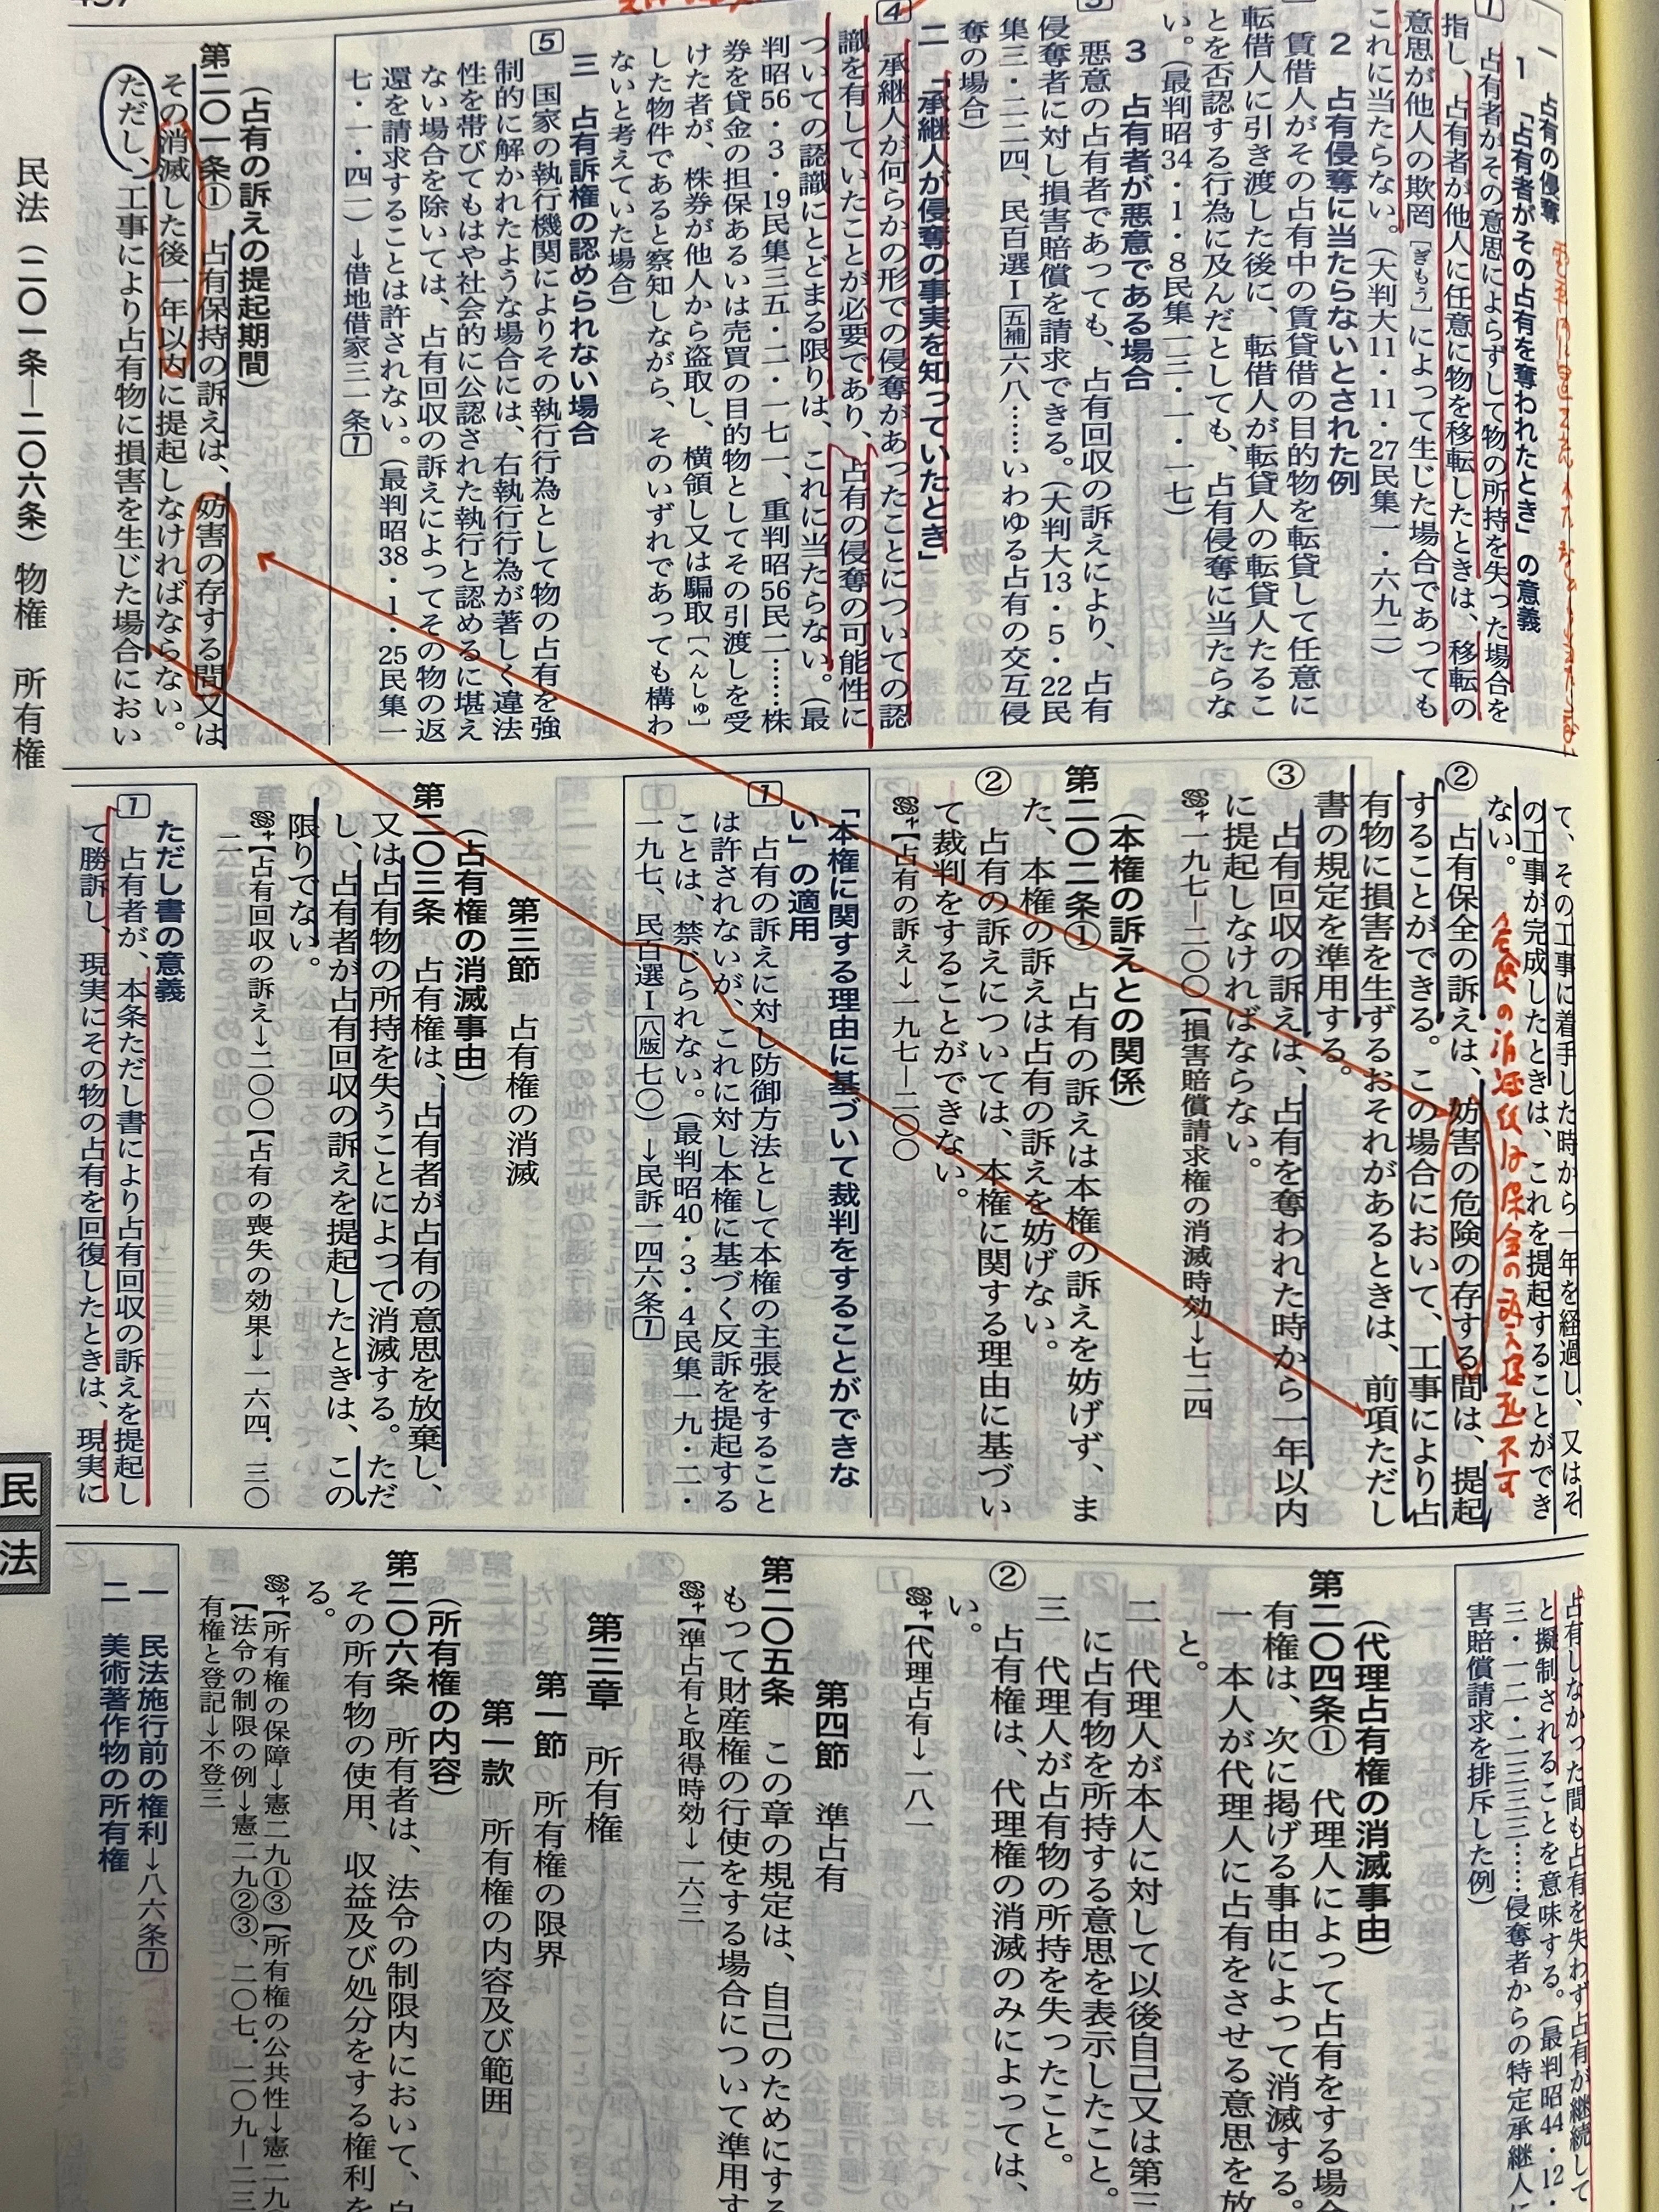 一 占有の侵奪
1 「占有者がその占有を奪われたとき」の意義
1 占有者がその意思によらずして物の所持を失った場合を
指し、占有者が他人に任意に物を移転したときは、移転の
意思が他人の欺罔［ぎもう］によって生じた場合であっても
これに当たらない。（大判大11・11・27民集一・六九二）
2 占有侵奪に当たらないとされた例
賃借人がその占有中の賃貸借の目的物を転貸して任意に
転借人に引き渡した後に、転借人が転貸人の転貸人たるこ
とを否認する行為に及んだとしても、占有侵奪に当たらな
い。（最判昭34・1・8民集一三・一・一七）
3 占有者が悪意である場合
3 悪意の占有者であっても、占有回収の訴えにより、占有
侵奪者に対し損害賠償を請求できる。（大判大13・5・22民
集三・二二四、民百選Ⅰ五補六八……いわゆる占有の交互侵
奪の場合）
二 「承継人が侵奪の事実を知っていたとき」
4 承継人が何らかの形での侵奪があったことについての認
識を有していたことが必要であり、占有の侵奪の可能性に
ついての認識にとどまる限りは、これに当たらない。（最
判昭56・3・19民集三五・二・一七一、重判昭56民二……株
券を貸金の担保あるいは売買の目的物としてその引渡しを受
けた者が、株券が他人から盗取し、横領し又は騙取［へんしゅ］
した物件であると察知しながら、そのいずれであっても構わ
ないと考えていた場合）
三 占有訴権の認められない場合
5 国家の執行機関によりその執行行為として物の占有を強
制的に解かれたような場合には、右執行行為が著しく違法
性を帯びてもはや社会的に公認された執行と認めるに堪え
ない場合を除いては、占有回収の訴えによってその物の返
還を請求することは許されない。（最判昭38・1・25民集一
七・一・四一）→借地借家三一条1
（占有の訴えの提起期間）
第二〇一条① 占有保持の訴えは、妨害の存する間又は
その消滅した後一年以内に提起しなければならない。
ただし、工事により占有物に損害を生じた場合におい
て、その工事に着手した時から一年を経過し、又はそ
の工事が完成したときは、これを提起することができ
ない。
② 占有保全の訴えは、妨害の危険の存する間は、提起
することができる。この場合において、工事により占
有物に損害を生ずるおそれがあるときは、前項ただし
書の規定を準用する。
③ 占有回収の訴えは、占有を奪われた時から一年以内
に提起しなければならない。
一九七―二〇〇【損害賠償請求権の消滅時効→七二四
（本権の訴えとの関係）
第二〇二条① 占有の訴えは本権の訴えを妨げず、ま
た、本権の訴えは占有の訴えを妨げない。
② 占有の訴えについては、本権に関する理由に基づい
て裁判をすることができない。
【占有の訴え→一九七―二〇〇
「本権に関する理由に基づいて裁判をすることができな
い」の適用
1 占有の訴えに対し防御方法として本権の主張をすること
は許されないが、これに対し本権に基づく反訴を提起する
ことは、禁じられない。（最判昭40・3・4民集一九・二・
一九七、民百選Ⅰ八版七〇）→民訴一四六条1
第三節 占有権の消滅
（占有権の消滅事由）
第二〇三条 占有権は、占有者が占有の意思を放棄し、
又は占有物の所持を失うことによって消滅する。ただ
し、占有者が占有回収の訴えを提起したときは、この
限りでない。
【占有回収の訴え→二〇〇【占有の喪失の効果→一六四・三〇
二
ただし書の意義
1 占有者が、本条ただし書により占有回収の訴えを提起し
て勝訴し、現実にその物の占有を回復したときは、現実に
占有しなかった間も占有を失わず占有が継続して
と擬制されることを意味する。（最判昭44・12・
三・一二・二三三三……侵奪者からの特定承継人
害賠償請求を排斥した例）
（代理占有権の消滅事由）
第二〇四条① 代理人によって占有をする場合
有権は、次に掲げる事由によって消滅する。
一 本人が代理人に占有をさせる意思を放
と。
二 代理人が本人に対して以後自己又は第三
に占有物を所持する意思を表示したこと。
三 代理人が占有物の所持を失ったこと。
② 占有権は、代理権の消滅のみによっては、
い。
【代理占有→一八一
第四節 準占有
第二〇五条 この章の規定は、自己のためにす
もって財産権の行使をする場合について準用す
【準占有と取得時効→一六三
第三章 所有権
第一節 所有権の限界
第一款 所有権の内容及び範囲
（所有権の内容）
第二〇六条 所有者は、法令の制限内において、自
その所有物の使用、収益及び処分をする権利を
る。
【所有権の保障→憲二九①③【所有権の公共性→憲二九
【法令の制限の例→憲二九②③、二〇七、二〇九―二三
有権と登記→不登三
一 民法施行前の権利→八六条1
二 美術著作物の所有権
民法（二〇一条―二〇六条）物権 所有権
民
法
危険の消滅後は保全の訴え提起不可